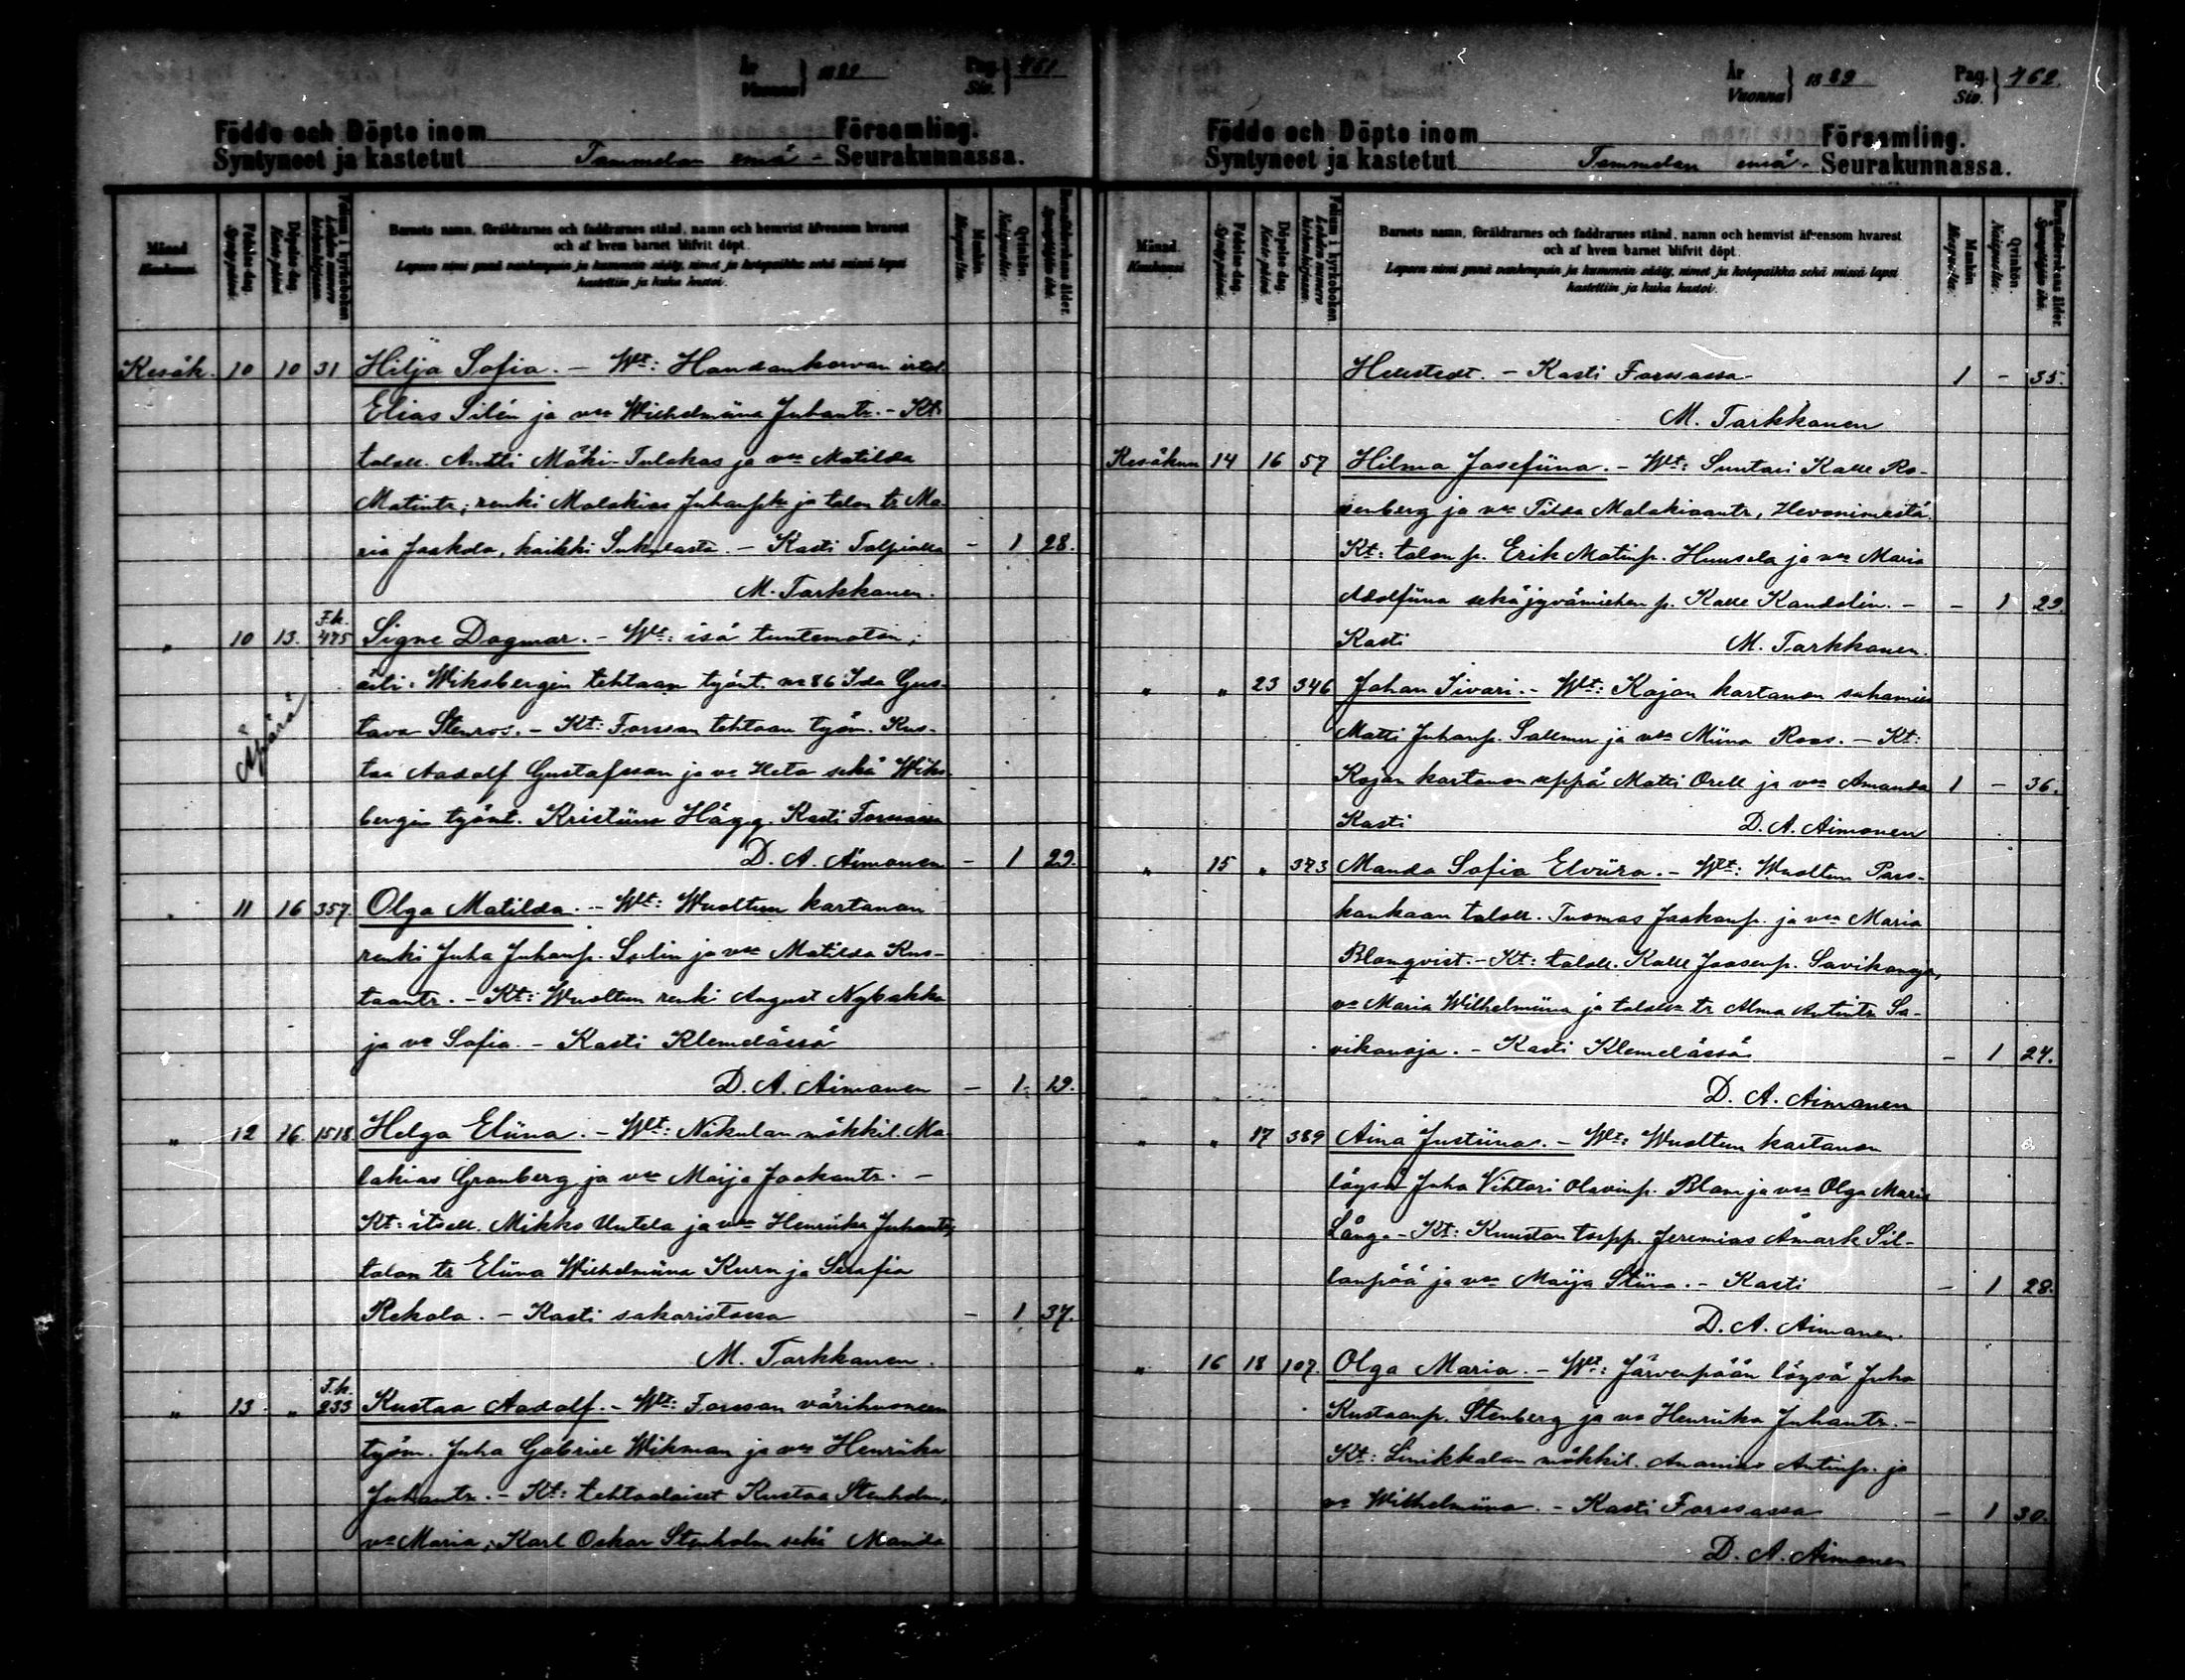 År
Vuonna } 1889 Pag. Siv. } 461
Födde och Döpte inom Församling.
Syntyneet ja kastetut Tammelan emä- Seurakunnassa.
Månad. Kuukausi.
Födelse-dag. Syntymäpäivä.
Döpelse-dag. Kaste-päivä.
Folium i kyrkoboken. Lehden numero kirkonkirjassa.
Barnets namn, föräldrarnes och faddrarnes stånd, namn och hemvist äfvensom hvarest
och af hvem barnet blifvit döpt.
Lapsen nimi ynnä vanhempain ja kummein sääty, nimet ja kotopaikka sekä missä lapsi
kastettiin ja kuka kastoi.
Mankön. Miespuolta.
Qvinkön. Naispuolta.
Barnaföderskans ålder. Synnyttäjän ikä.
Kesäk. 10 10 31 Hilja Sofia. - Wt: Haudankorvan itsel.
Elias Silén ja vmo Wilhelmiina Juhantr. - Kt:
taloll. Antti Mäki-Tulokas ja vmo Matilda
Matintr, renki Malakias Juhanpka ja talon tr Ma-
ria Jaakola, kaikki Sukulasta. - Kasti Talpialla - 1 28.
M. Tarkkanen.
" 10 13. F.k. 475 Signe Dagmar. - Wt: isä tuntematon;
Äpärä
äiti: Wiksbergin tehtaan työnt. No 86 Ida Gus-
tava Stenros. - Kt: Forssan tehtaan työm. Kus-
taa Aadolf Gustafsson ja vo Heta sekä Wiks-
bergin työnt. Kristiina Hägg. Kasti Forssassa
D. A. Aimonen - 1 29.
" 11 16 357 Olga Matilda. - Wt: Wuoltun kartanon
renki Juha Juhanp. Salin ja vmo Matilda Kus-
taantr. - Kt: Wuoltun renki August Nybakka
ja vo Sofia. - Kasti Klemelässä
D. A. Aimonen - 1 19.
" 12 16. 1518 Helga Eliina. - Wt: Nikulan mökkil. Ma-
lakias Granberg ja vmo Maija Jaakontr. -
Kt: itsell. Mikko Uutela ja vmo Henriika Juhantr,
talon tr Eliina Wilhelmiina Kurn ja Serafia
Rekola. - Kasti sakaristossa - 1 37.
M. Tarkkanen.
" 13. " F.k. 233 Kustaa Aadolf. - Wt: Forssan värihuoneen
työm. Juha Gabriel Wikman ja vmo Henriika
Juhantr. - Kt: tehtaalaiset Kustaa Stenholm,
vo Maria, Karl Oskar Stenholm sekä Manda
År
Vuonna } 1889 Pag. Siv. } 462.
Födde och Döpte inom Församling.
Syntyneet ja kastetut Tammelan emä- Seurakunnassa.
Månad. Kuukausi.
Födelse-dag. Syntymäpäivä.
Döpelse-dag. Kaste-päivä.
Folium i kyrkoboken. Lehden numero kirkonkirjassa.
Barnets namn, föräldrarnes och faddrarnes stånd, namn och hemvist äfvensom hvarest
och af hvem barnet blifvit döpt.
Lapsen nimi ynnä vanhempain ja kummein sääty, nimet ja kotopaikka sekä missä lapsi
kastettiin ja kuka kastoi.
Mankön. Miespuolta.
Qvinkön. Naispuolta.
Barnaföderskans ålder. Synnyttäjän ikä.
Hellstedt. - Kasti Forssassa 1 - 35.
M. Tarkkanen
Kesäkuu 14 16 57 Hilma Josefiina. - Wt: Suutari Kalle Ro-
senberg ja vmo Tilda Malakiaantr, Hevoniemestä.
Kt: talonp. Erik Matinp. Huusela ja vmo Maria
Adolfiina sekä jyvämiehen p. Kalle Kandolin. - - 1 29.
Kasti M. Tarkkanen.
" " 23 346 Johan Iivari. - Wt: Kojon kartanon sahamies
Matti Juhanp. Salmen ja vmo Miina Roos. - Kt:
Kojon kartanon seppä Matti Orell ja vmo Amanda 1 - 36.
Kasti D. A. Aimonen
" 15 " 373 Manda Sofia Elviira. - Wt: Wuoltun Pars-
kankaan taloll. Tuomas Jaakonp. ja vmo Maria
Blomqvist. - Kt: taloll. Kalle Joosenp. Savikonoja,
vo Maria Wilhelmiina ja talollo tr Alma Antintr Sa-
vikonoja. - Kasti Klemelässä - 1 24.
D. A. Aimonen
" " 17 389 Aina Justiina. - Wt: Wuoltun kartanon
löysä Juha Vihtori Olavinp. Blom ja vmo Olga Maria
Lång. - Kt: Kuustan torpp. Jeremias Åmark Sil-
lanpää ja vmo Maija Stiina. - Kasti - 1 28.
D. A. Aimonen.
" 16 18 107. Olga Maria. - Wt: Järvenpään löysä Juha
Kustaanp. Stenberg ja vo Henriika Juhantr. -
Kt: Linikkalan mökkil. Ananias Antinp. ja
vo Wilhelmiina. - Kasti Forssassa - 1 30.
D. A. Aimonen